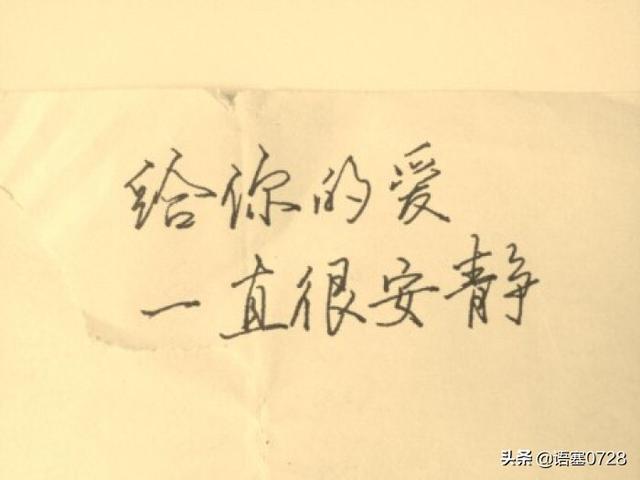 给你的爱
一直很安静
头条 @语塞0728